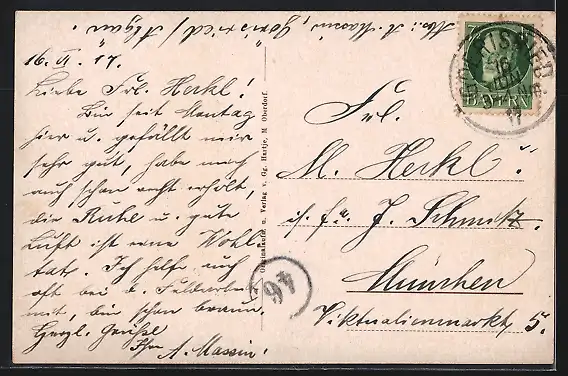 Abs: A. Massin, Görisried / Allgäu.
16. VI. 17.
Liebe Frl. Herkl!
Bin seit Montag
hier u. gefällt mir
sehr gut, habe mich
auch schon recht erholt,
die Ruhe u. gute
Luft ist eine Wohl-
tat. Ich helfe auch
oft bei d. Feldarbeit
mit, bin schon braun.
Herzl. Grüße
Ihre A. Massin!
Originalaufn. u. Verlag v. Gg. Hartje, M. Oberdorf.
46
GÖRISRIED
16 JUN
17
BAYERN
Frl.
M. Herkl
i. Fa. J. Schmitz
München
Viktualienmarkt 5.